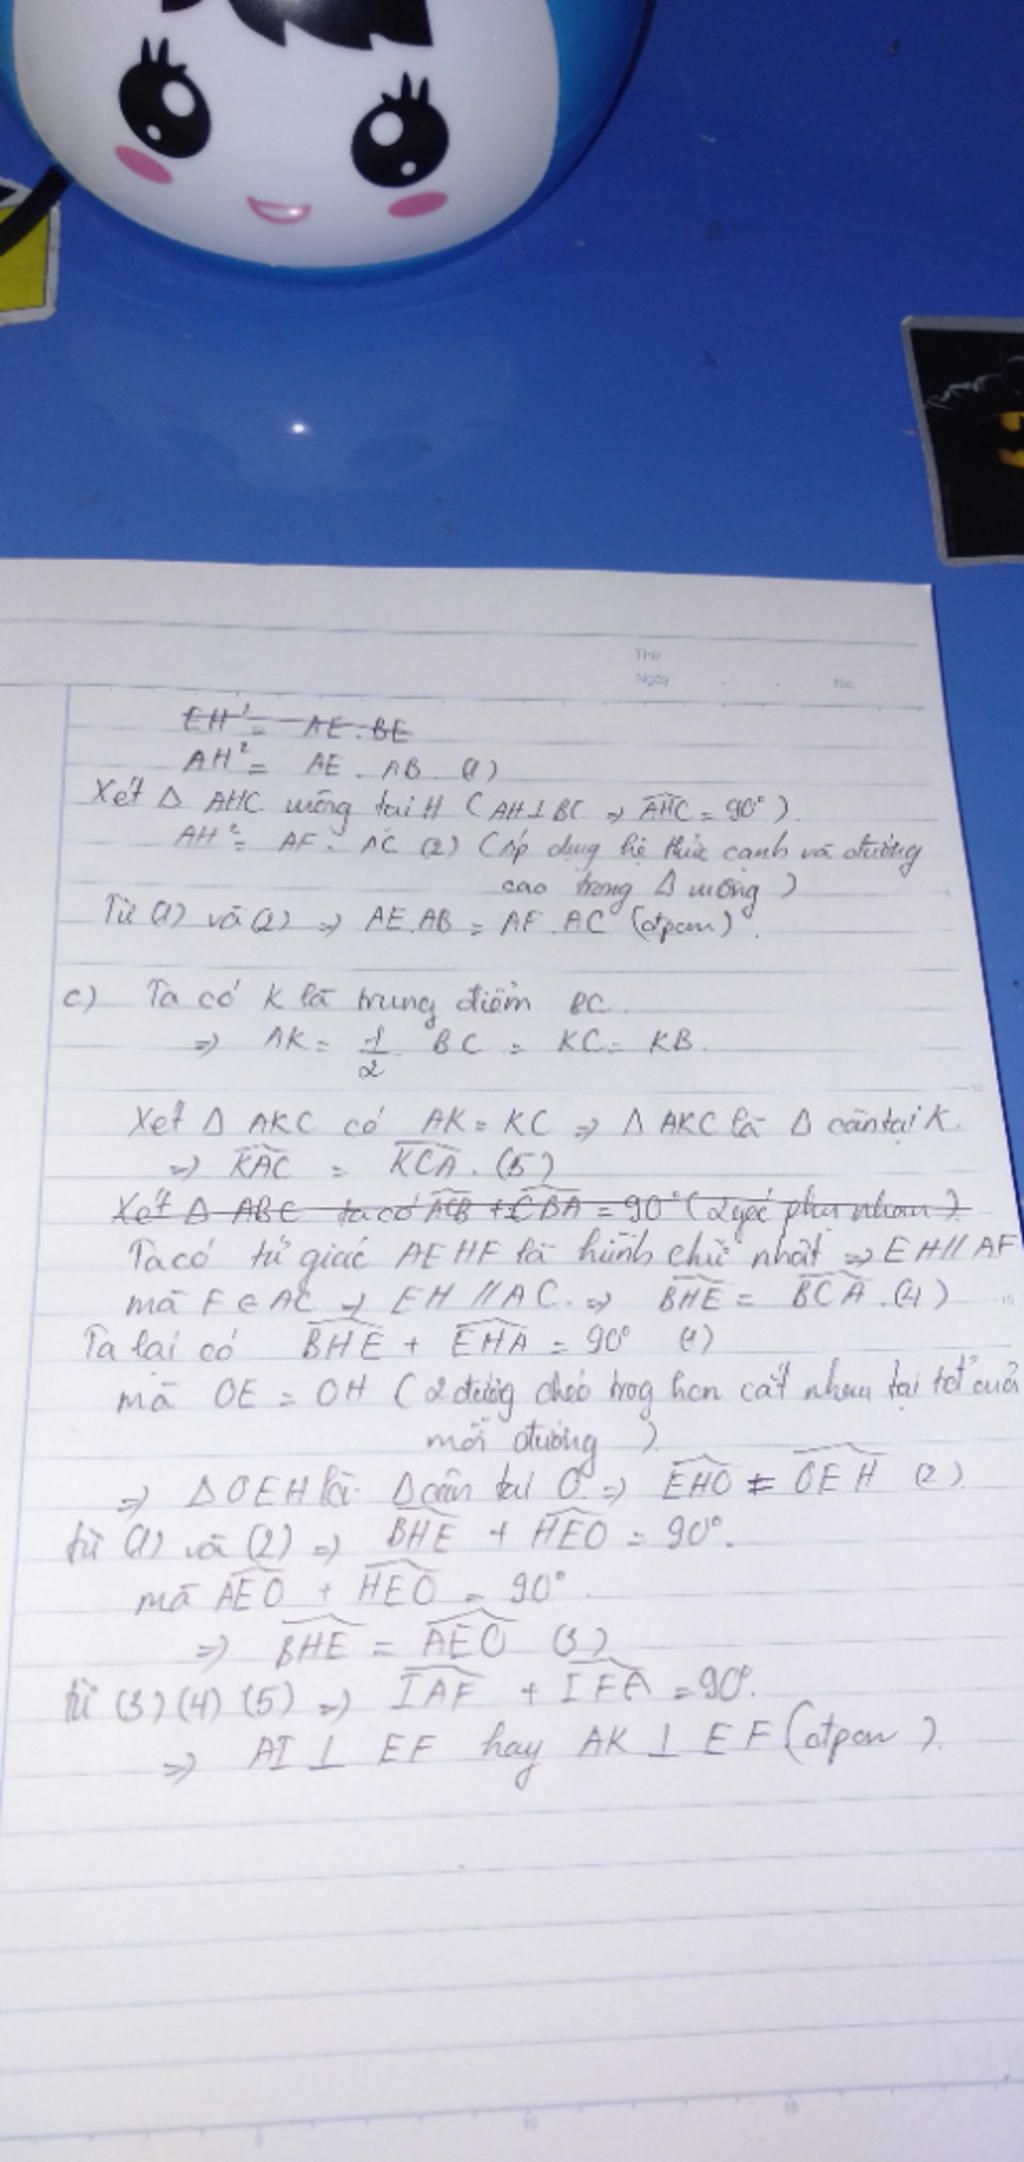 Thứ
Ngày . . No.
EH² = AE . BE
AH² = AE . AB (1)
Xét Δ AHC vuông tại H ( AH ⊥ BC ⇒ AHC = 90° ).
AH² = AF . AC (2) ( Áp dụng hệ thức cạnh và đường
cao trong Δ vuông )
Từ (1) và (2) ⇒ AE.AB = AF.AC (đpcm).
c) Ta có K là trung điểm BC.
⇒ AK = 1/2 BC = KC = KB.
Xét Δ AKC có AK = KC ⇒ Δ AKC là Δ cân tại K.
⇒ KAC = KCA. (5)
Xét Δ ABC ta có ACB + CBA = 90° ( 2 góc phụ nhau )
Ta có tứ giác AEHF là hình chữ nhật ⇒ EH // AF
mà F ∈ AC ⇒ EH // AC. ⇒ BHE = BCA. (4)
Ta lại có BHE + EHA = 90° (1)
mà OE = OH ( 2 đường chéo trog hcn cắt nhau tại tđ của
mỗi đường )
⇒ Δ OEH là Δ cân tại O ⇒ EHO = OEH (2)
từ (1) và (2) ⇒ BHE + HEO = 90°.
mà AEO + HEO = 90°.
⇒ BHE = AEO (3)
từ (3) (4) (5) ⇒ IAF + IFA = 90°.
⇒ AI ⊥ EF hay AK ⊥ EF ( đpcm ).
10